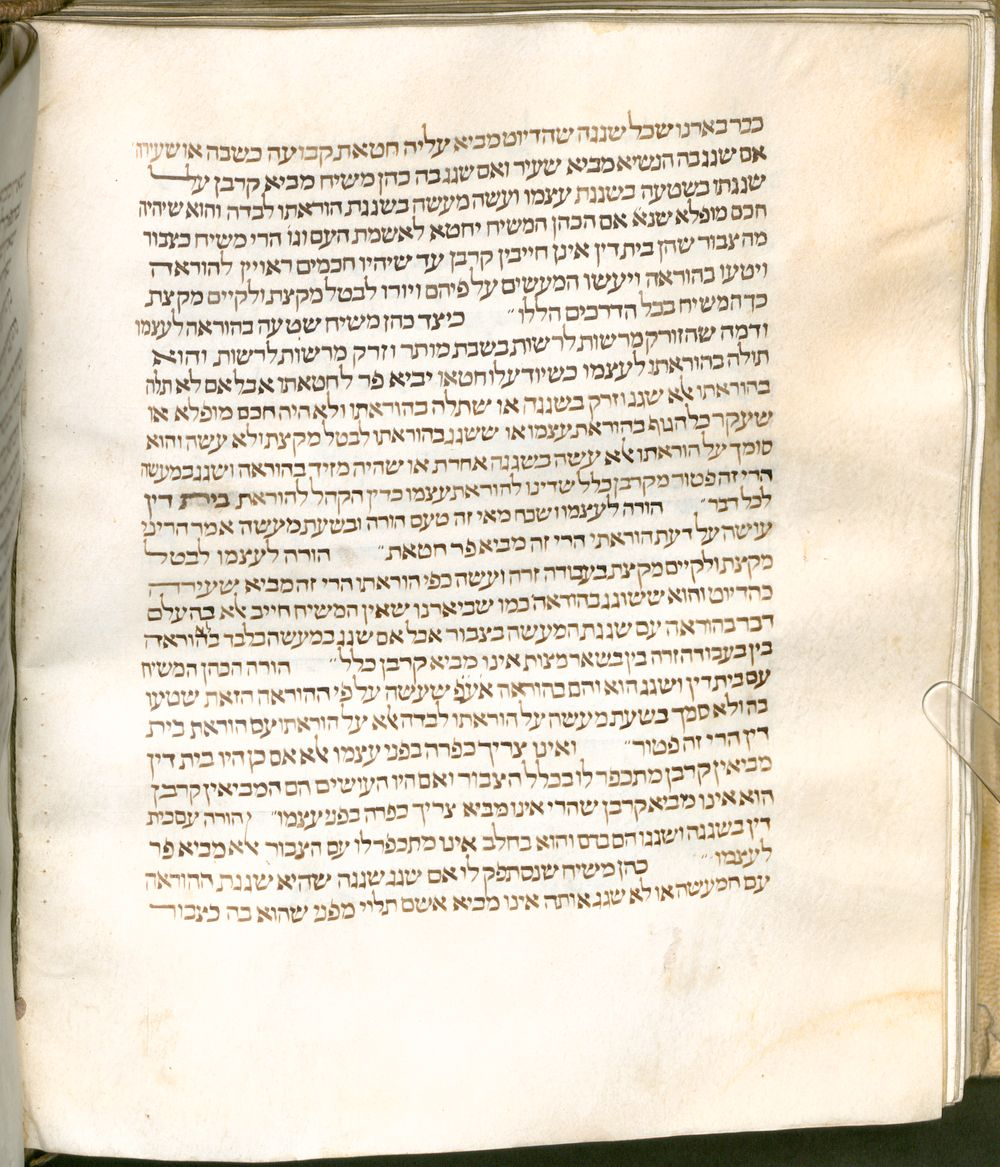 כבר בארנו שכל שגגה שהדיוט מביא עליה חטאת קבועה כשבה או שעירה
אם שגג בה הנשיא מביא שעיר ואם שגג בה כהן משיח מביא קרבן על
שגגתו בשטעה בשגגת עצמו ועשה מעשה בשגגת הוראתו לבדה והוא שיהיה
חכם מופלא שנא' אם הכהן המשיח יחטא לאשמת העם וגו' הרי משיח כצבור
מה צבור שהן בית דין אינן חייבין קרבן עד שיהיו חכמים ראויין להוראה
ויטעו בהוראה ויעשו המעשים על פיהם ויורו לבטל מקצת ולקיים מקצת
כך המשיח בכל הדרכים הללו ״ כיצד כהן משיח שטעה בהוראה לעצמו
ודמה שהזורק מרשות לרשות בשבת מותר וזרק מרשות לרשות והוא
תולה בהוראתו לעצמו כשיודע לו חטאו יביא פר לחטאתו אבל אם לא תלה
בהוראתו אלא שגג וזרק בשגגה או שתלה בהוראתו ולא היה חכם מופלא או
שעקר כל הגוף בהוראת עצמו או ששגג בהוראתו לבטל מקצת ולא עשה והוא
סומך על הוראתו אלא עשה בשגגה אחרת או שהיה מזיד בהוראה ושגג במעשה
הרי זה פטור מקרבן כלל שדינו להוראת עצמו כדין הקהל להוראת בית דין
לכל דבר ״ הורה לעצמו ושכח מאי זה טעם הורה ובשעת מעשה אמר הריני
עושה על דעת הוראתי הרי זה מביא פר חטאת ״ הורה לעצמו לבטל
מקצת ולקיים מקצת בעבודה זרה ועשה כפי הוראתו הרי זה מביא שעירה
כהדיוט והוא ששוגג בהוראה כמו שביארנו שאין המשיח חייב אלא בהעלם
דבר בהוראה עם שגגת המעשה כצבור אבל אם שגג במעשה בלבד בלא הוראה
בין בעבודה זרה בין בשאר מצות אינו מביא קרבן כלל ״ הורה הכהן המשיח
עם בית דין ושגג הוא והם בהוראה אעפ שעשה על פי ההוראה הזאת שטעו
בה ולא סמך בשעת מעשה על הוראתו לבדה אלא על הוראתו עם הוראת בית
דין הרי זה פטור ״ ואינו צריך כפרה בפני עצמו אלא אם כן היו בית דין
מביאין קרבן מתכפר לו בכלל הצבור ואם היו העושים הם המביאין קרבן
הוא אינו מביא קרבן שהרי אינו מביא צריך כפרה בפני עצמו ״ הורה עם בית
דין בשגגה ושגגו הם בדם והוא בחלב אינו מתכפר לו עם הצבור אלא מביא פר
לעצמו ״ כהן משיח שנסתפק לו אם שגג שגגה שהיא שגגת ההוראה
עם המעשה או לא שגג אותה אינו מביא אשם תלוי מפני שהוא בה כצבור